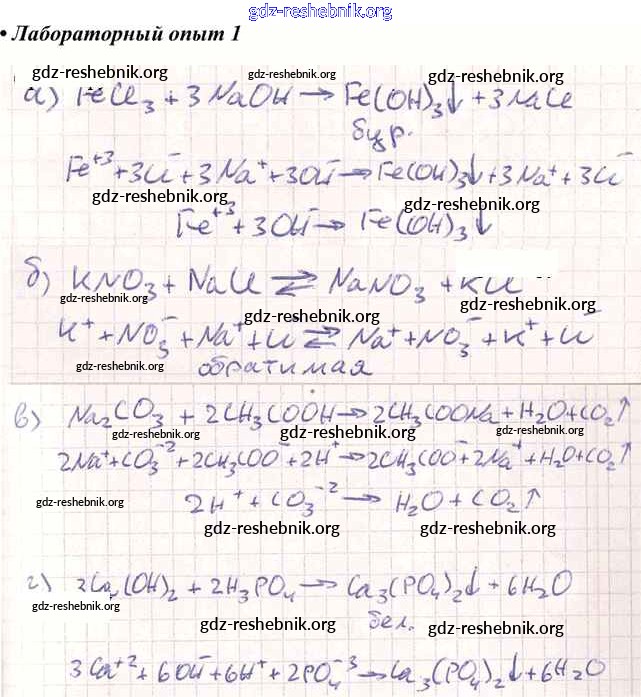 gdz-reshebnik.org
• Лабораторный опыт 1
gdz-reshebnik.org gdz-reshebnik.org gdz-reshebnik.org
а) FeCl₃ + 3NaOH → Fe(OH)₃↓ + 3NaCl
бур.
gdz-reshebnik.org
Fe⁺³ + 3Cl⁻ + 3Na⁺ + 3OH⁻ → Fe(OH)₃↓ + 3Na⁺ + 3Cl⁻
gdz-reshebnik.org gdz-reshebnik.org
Fe⁺³ + 3OH⁻ → Fe(OH)₃↓
б) KNO₃ + NaCl ⇄ NaNO₃ + KCl
gdz-reshebnik.org gdz-reshebnik.org
gdz-reshebnik.org
K⁺ + NO₃⁻ + Na⁺ + Cl⁻ ⇄ Na⁺ + NO₃⁻ + K⁺ + Cl⁻
gdz-reshebnik.org gdz-reshebnik.org
обратимая
в) Na₂CO₃ + 2CH₃COOH → 2CH₃COONa + H₂O + CO₂↑
gdz-reshebnik.org gdz-reshebnik.org gdz-reshebnik.org
2Na⁺ + CO₃⁻² + 2CH₃COO⁻ + 2H⁺ → 2CH₃COO⁻ + 2Na⁺ + H₂O + CO₂↑
gdz-reshebnik.org
2H⁺ + CO₃⁻² → H₂O + CO₂↑
gdz-reshebnik.org gdz-reshebnik.org
г) 3Ca(OH)₂ + 2H₃PO₄ → Ca₃(PO₄)₂↓ + 6H₂O
gdz-reshebnik.org
бел.
gdz-reshebnik.org gdz-reshebnik.org
3Ca⁺² + 6OH⁻ + 6H⁺ + 2PO₄⁻³ → Ca₃(PO₄)₂↓ + 6H₂O
gdz-reshebnik.org